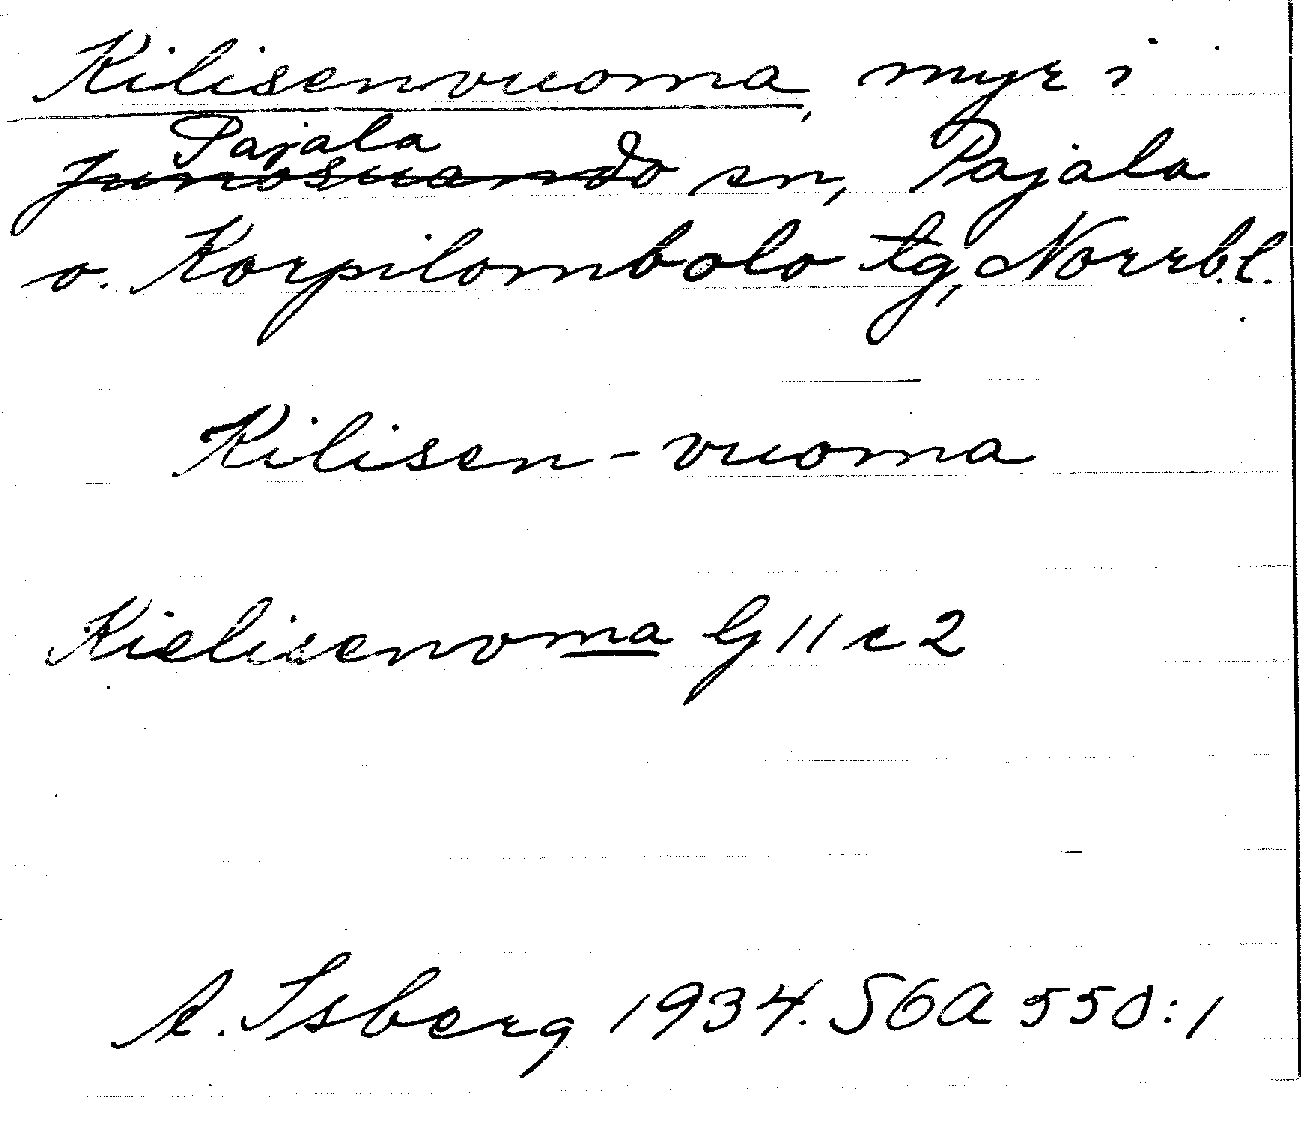 Kilisenvuoma, myr i
Pajala
Junosuando sn, Pajala
o. Korpilombolo tg, Norrb.l.
Kilisen-vuoma
Kielisenvoma G 11 c 2
A. Isberg 1934. SOA 550:1